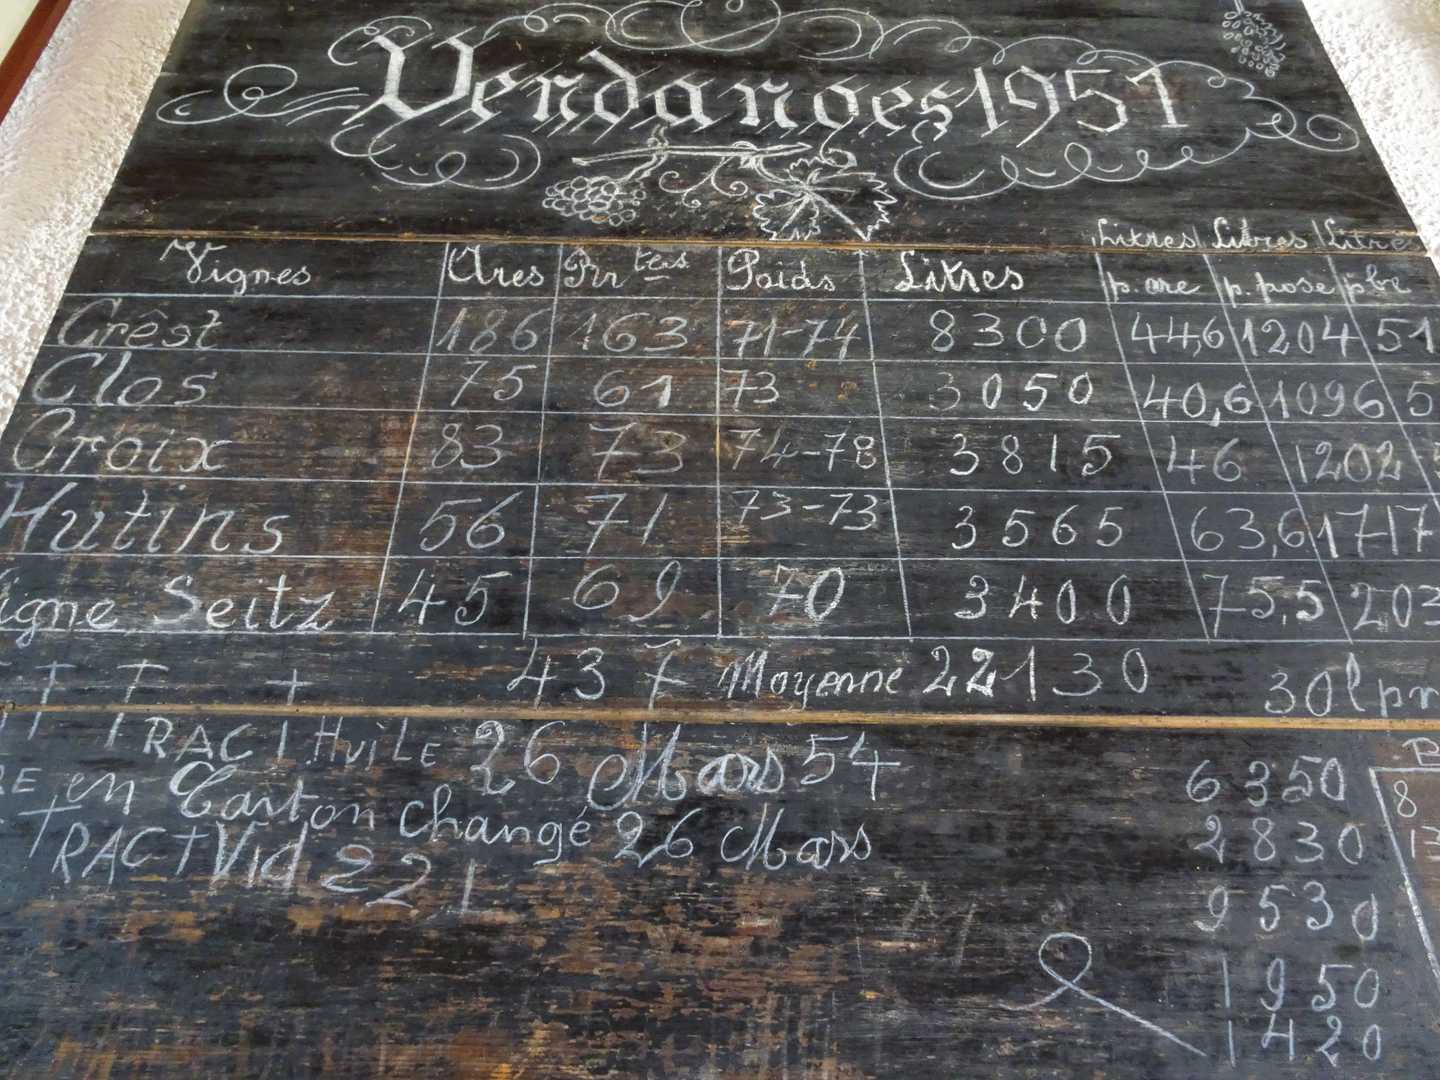 Vendanges 1951
Litres Litres Litre
Vignes Ares Brtées Poids Litres p. are p. pose p br
Crêst 186 163 71-74 8300 44,6 1204 51
Clos 75 61 73 3050 40,6 1096 5
Croix 83 73 74-78 3815 46 1202
Hutins 56 71 73-73 3565 63,6 1717
igne Seitz 45 69 70 3400 75,5 203
437 Moyenne 22130 30l
TRACT HuiLE 26 Mars 54 6350
RE en Carton changé 26 Mars 2830
TRACT Vid 22 L 9530
1950
1420
B
8
13